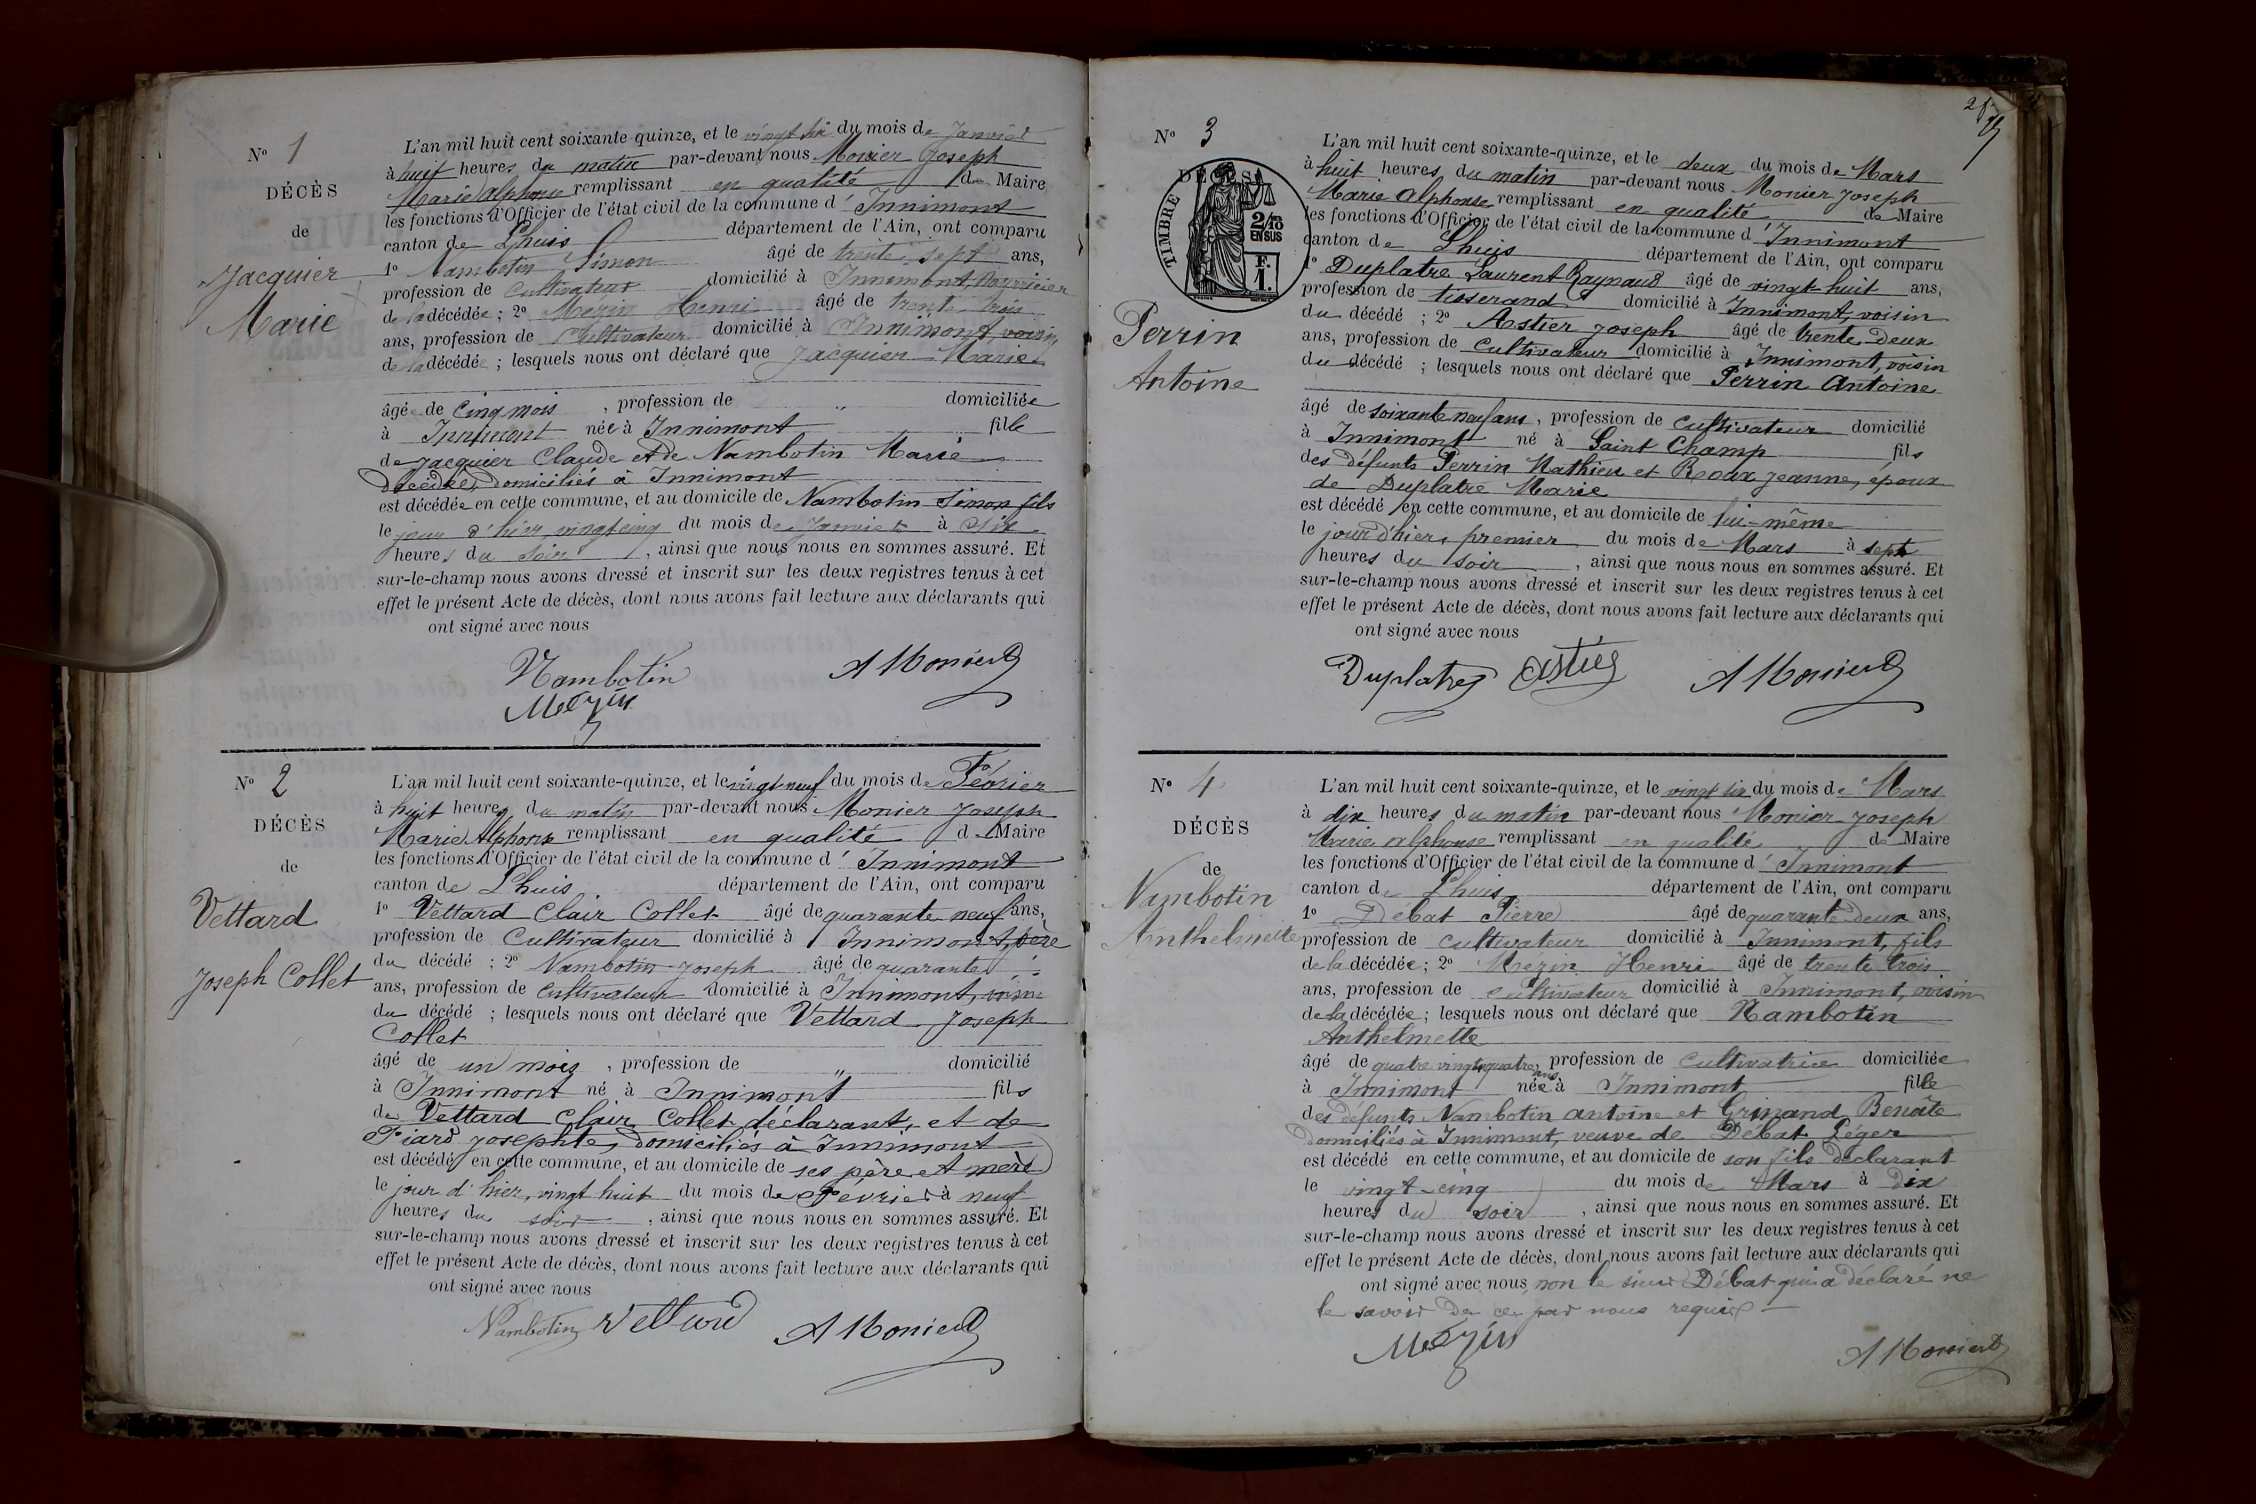 N° 1
DÉCÈS
de
Jacquier
Marie
L'an mil huit cent soixante quinze, et le vingt six du mois de Janvier
à huit heures du matin par-devant nous Monier Joseph
Marie Alphonse remplissant en qualité de Maire
les fonctions d'Officier de l'état civil de la commune d'Innimont
canton de Lhuis département de l'Ain, ont comparu
1° Nambotin Simon âgé de trente sept ans,
profession de Cultivateur domicilié à Innimont, nourricier
de la décédée ; 2° Mézin Henri âgé de trente trois
ans, profession de Cultivateur domicilié à Innimont, voisin
de la décédée ; lesquels nous ont déclaré que Jacquier Marie
âgée de Cinq mois , profession de " domiciliée
à Innimont née à Innimont fille
de Jacquier Claude et de Nambotin Marie
domiciliés à Innimont
est décédée en cette commune, et au domicile de Nambotin Simon fils
le jour d'hier, vingt cinq du mois de Janvier à Six
heures du Soir , ainsi que nous nous en sommes assuré. Et
sur-le-champ nous avons dressé et inscrit sur les deux registres tenus à cet
effet le présent Acte de décès, dont nous avons fait lecture aux déclarants qui
ont signé avec nous
Nambotin A Monier
Mézin
N° 2
DÉCÈS
de
Vettard
Joseph Collet
L'an mil huit cent soixante-quinze, et le vingt neuf du mois de Février
à huit heures du matin par-devant nous Monier Joseph
Marie Alphonse remplissant en qualité d Maire
les fonctions d'Officier de l'état civil de la commune d'Innimont
canton de Lhuis département de l'Ain, ont comparu
1° Vettard Clair Collet âgé de quarante neuf ans,
profession de Cultivateur domicilié à Innimont, père
du décédé ; 2° Nambotin Joseph âgé de quarante
ans, profession de Cultivateur domicilié à Innimont, voisin
du décédé ; lesquels nous ont déclaré que Vettard Joseph
Collet
âgé de un mois , profession de " domicilié
à Innimont né à Innimont fils
de Vettard Clair Collet déclarant, et de
Piard Josephte, domiciliés à Innimont
est décédé en cette commune, et au domicile de ses père et mère
le jour d'hier, vingt huit du mois de Février à neuf
heures du soir , ainsi que nous nous en sommes assuré. Et
sur-le-champ nous avons dressé et inscrit sur les deux registres tenus à cet
effet le présent Acte de décès, dont nous avons fait lecture aux déclarants qui
ont signé avec nous
Nambotin Vettard A Monier
N° 3
DÉCÈS
TIMBRE
2/10
EN SUS
F.
1.
Perrin
Antoine
L'an mil huit cent soixante-quinze, et le deux du mois de Mars
à huit heures du matin par-devant nous Monier Joseph
Marie Alphonse remplissant en qualité de Maire
les fonctions d'Officier de l'état civil de la commune d'Innimont
canton de Lhuis département de l'Ain, ont comparu
1° Duplatre Laurent Raynaud âgé de vingt-huit ans,
profession de tisserand domicilié à Innimont, voisin
du décédé ; 2° Astier Joseph âgé de trente deux
ans, profession de Cultivateur domicilié à Innimont, voisin
du décédé ; lesquels nous ont déclaré que Perrin Antoine
âgé de soixante neuf ans, profession de Cultivateur domicilié
à Innimont né à Saint Champ fils
des défunts Perrin Mathieu et Roux Jeanne, époux
de Duplatre Marie
est décédé en cette commune, et au domicile de lui-même
le jour d'hier, premier du mois de Mars à sept
heures du soir , ainsi que nous nous en sommes assuré. Et
sur-le-champ nous avons dressé et inscrit sur les deux registres tenus à cet
effet le présent Acte de décès, dont nous avons fait lecture aux déclarants qui
ont signé avec nous
Duplatre Astier A Monier
N° 4
DÉCÈS
de
Nambotin
Anthelmette
L'an mil huit cent soixante-quinze, et le vingt six du mois de Mars
à dix heures du matin par-devant nous Monier Joseph
Marie Alphonse remplissant en qualité de Maire
les fonctions d'Officier de l'état civil de la commune d'Innimont
canton de Lhuis département de l'Ain, ont comparu
1° Débat Pierre âgé de quarante deux ans,
profession de cultivateur domicilié à Innimont, fils
de la décédée ; 2° Mézin Henri âgé de trente trois
ans, profession de cultivateur domicilié à Innimont, voisin
de la décédée ; lesquels nous ont déclaré que Nambotin
Anthelmette
âgé de quatre vingt quatre ans, profession de cultivatrice domiciliée
à Innimont née à Innimont fille
des défunts Nambotin Antoine et Grinand Benoite
domiciliés à Innimont, veuve de Débat Léger
est décédé en cette commune, et au domicile de son fils déclarant
le vingt-cinq du mois de Mars à Dix
heures du soir , ainsi que nous nous en sommes assuré. Et
sur-le-champ nous avons dressé et inscrit sur les deux registres tenus à cet
effet le présent Acte de décès, dont nous avons fait lecture aux déclarants qui
ont signé avec nous, non le sieur Débat qui a déclaré ne
le savoir de ce par nous requis
Mézin
A Monier